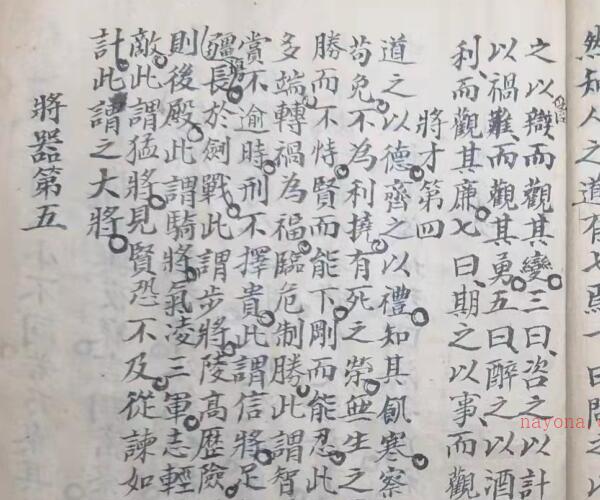 然知人之道有七焉一曰問之以
之以辯而觀其變三曰咨之以計
以禍難而觀其勇五曰醉之以酒
利而觀其廉七曰期之以事而觀
將才第四
道之以德齊之以禮知其飢寒察
苟免不為利撓有死之榮無生之
勝而不恃賢而能下剛而能忍此
多端轉禍為福臨危制勝此謂智
賞不逾時刑不擇貴此謂信將足
疆長於劍戰此謂步將陵高歷險
則後殿此謂騎將氣凌三軍志輕
敵此謂猛將見賢恐不及從諫如
計此謂之大將
將器第五
nayona